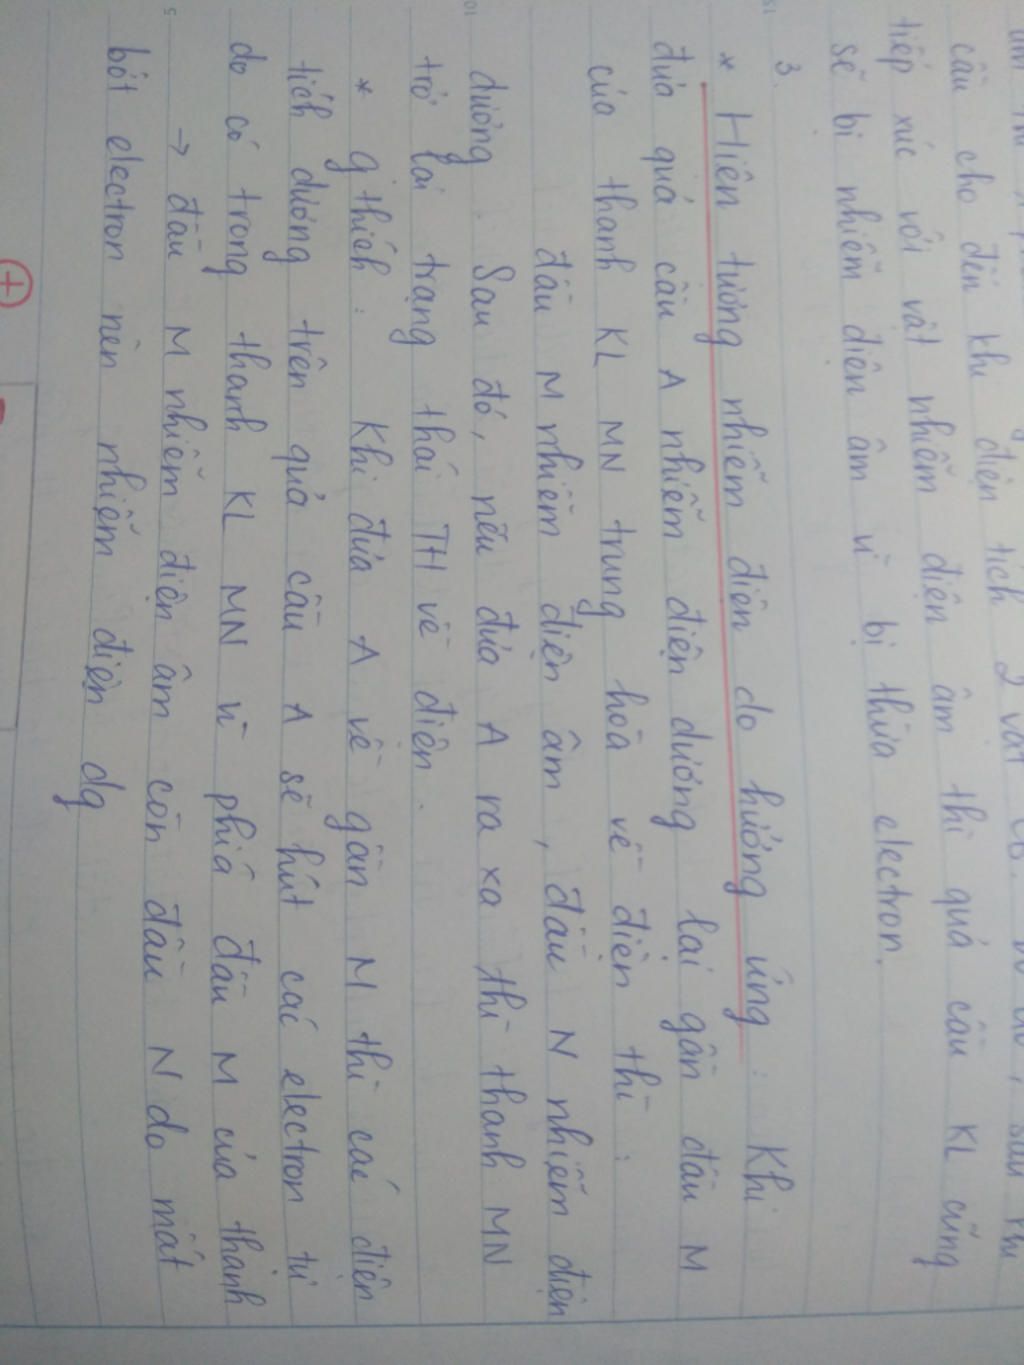 cầu cho đến khi điện tích 2 vật CB.
tiếp xúc với vật nhiễm điện âm thì quả cầu KL cũng
sẽ bị nhiễm điện âm vì bị thừa electron.
3.
* Hiện tượng nhiễm điện do hưởng ứng : Khi
đưa quả cầu A nhiễm điện dương lại gần đầu M
của thanh KL MN trung hoà về điện thì :
đầu M nhiễm điện âm , đầu N nhiễm điện
dương . Sau đó, nếu đưa A ra xa thì thanh MN
trở lại trạng thái TH về điện .
* g thích : Khi đưa A về gần M thì các điện
tích dương trên quả cầu A sẽ hút các electron tự
do có trong thanh KL MN về phía đầu M của thanh
→ đầu M nhiễm điện âm còn đầu N do mất
bớt electron nên nhiễm điện dg